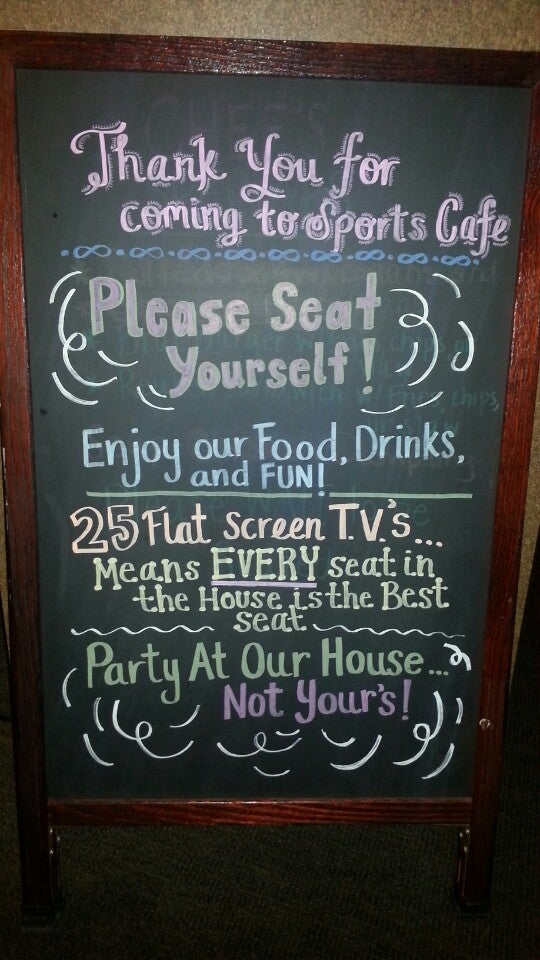 Thank You for
coming to Sports Cafe
Please Seat
Yourself!
Enjoy our Food, Drinks,
and FUN!
25 Flat Screen T.V.'s...
Means EVERY seat in
the House is the Best
seat
Party At Our House...
Not Your's!